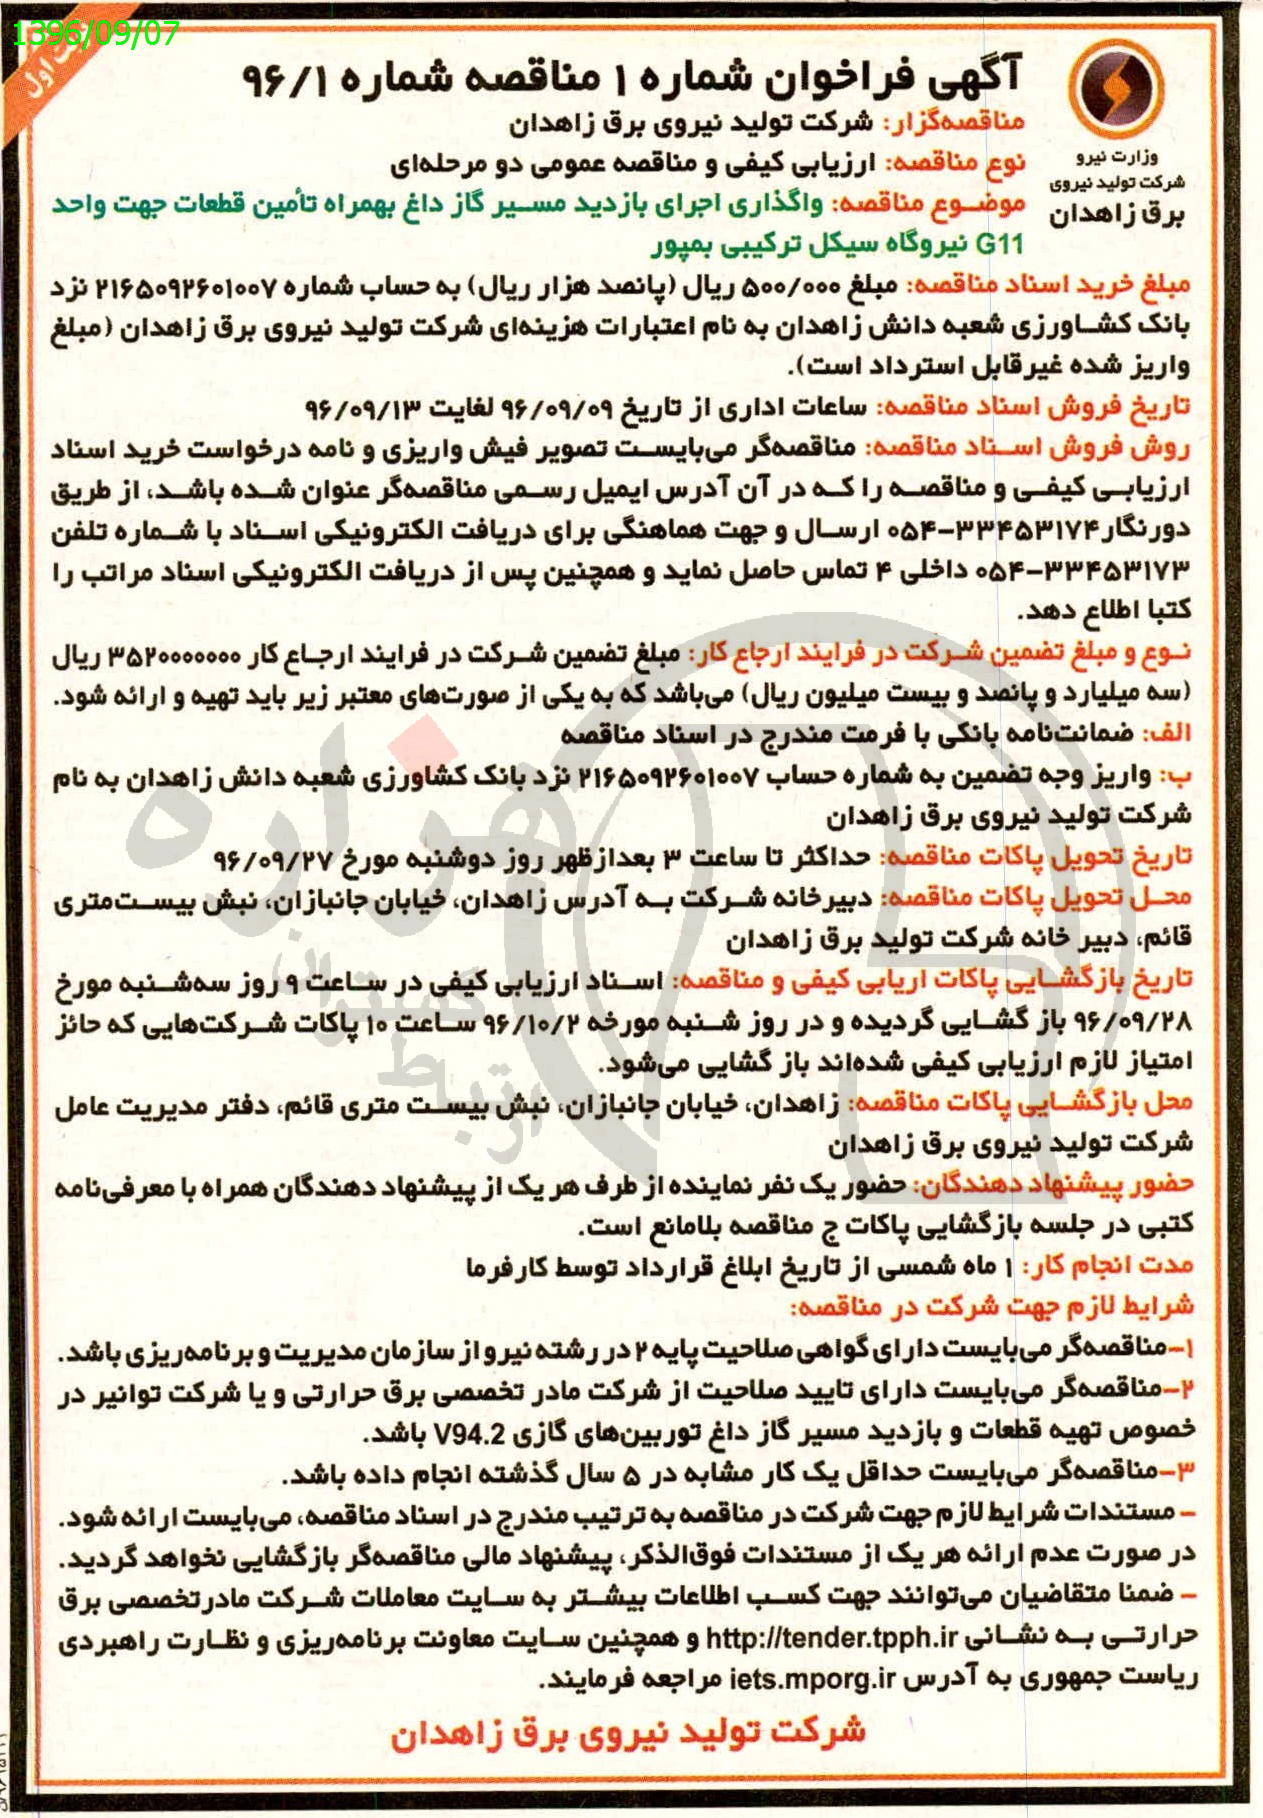 1396/09/07
نوبت اول
وزارت نیرو
شرکت تولید نیروی
برق زاهدان
آگهی فراخوان شماره ۱ مناقصه شماره ۹۶/۱
مناقصه‌گزار: شرکت تولید نیروی برق زاهدان
نوع مناقصه: ارزیابی کیفی و مناقصه عمومی دو مرحله‌ای
موضوع مناقصه: واگذاری اجرای بازدید مسیر گاز داغ بهمراه تأمین قطعات جهت واحد
G11 نیروگاه سیکل ترکیبی بمپور
مبلغ خرید اسناد مناقصه: مبلغ ۵۰۰/۰۰۰ ریال (پانصد هزار ریال) به حساب شماره ۲۱۶۵۰۹۲۶۰۱۰۰۷ نزد
بانک کشاورزی شعبه دانش زاهدان به نام اعتبارات هزینه‌ای شرکت تولید نیروی برق زاهدان (مبلغ
واریز شده غیرقابل استرداد است).
تاریخ فروش اسناد مناقصه: ساعات اداری از تاریخ ۹۶/۰۹/۰۹ لغایت ۹۶/۰۹/۱۳
روش فروش اسناد مناقصه: مناقصه‌گر می‌بایست تصویر فیش واریزی و نامه درخواست خرید اسناد
ارزیابی کیفی و مناقصه را که در آن آدرس ایمیل رسمی مناقصه‌گر عنوان شده باشد، از طریق
دورنگار ۳۳۴۵۳۱۷۴-۰۵۴ ارسال و جهت هماهنگی برای دریافت الکترونیکی اسناد با شماره تلفن
۳۳۴۵۳۱۷۳-۰۵۴ داخلی ۴ تماس حاصل نماید و همچنین پس از دریافت الکترونیکی اسناد مراتب را
کتبا اطلاع دهد.
نوع و مبلغ تضمین شرکت در فرایند ارجاع کار: مبلغ تضمین شرکت در فرایند ارجاع کار ۳۵۲۰۰۰۰۰۰۰ ریال
(سه میلیارد و پانصد و بیست میلیون ریال) می‌باشد که به یکی از صورت‌های معتبر زیر باید تهیه و ارائه شود.
الف: ضمانت‌نامه بانکی با فرمت مندرج در اسناد مناقصه
ب: واریز وجه تضمین به شماره حساب ۲۱۶۵۰۹۲۶۰۱۰۰۷ نزد بانک کشاورزی شعبه دانش زاهدان به نام
شرکت تولید نیروی برق زاهدان
تاریخ تحویل پاکات مناقصه: حداکثر تا ساعت ۳ بعدازظهر روز دوشنبه مورخ ۹۶/۰۹/۲۷
محل تحویل پاکات مناقصه: دبیرخانه شرکت به آدرس زاهدان، خیابان جانبازان، نبش بیست‌متری
قائم، دبیر خانه شرکت تولید برق زاهدان
تاریخ بازگشایی پاکات اریابی کیفی و مناقصه: اسناد ارزیابی کیفی در ساعت ۹ روز سه‌شنبه مورخ
۹۶/۰۹/۲۸ باز گشایی گردیده و در روز شنبه مورخه ۹۶/۱۰/۲ ساعت ۱۰ پاکات شرکت‌هایی که حائز
امتیاز لازم ارزیابی کیفی شده‌اند باز گشایی می‌شود.
محل بازگشایی پاکات مناقصه: زاهدان، خیابان جانبازان، نبش بیست متری قائم، دفتر مدیریت عامل
شرکت تولید نیروی برق زاهدان
حضور پیشنهاد دهندگان: حضور یک نفر نماینده از طرف هر یک از پیشنهاد دهندگان همراه با معرفی‌نامه
کتبی در جلسه بازگشایی پاکات ج مناقصه بلامانع است.
مدت انجام کار: ۱ ماه شمسی از تاریخ ابلاغ قرارداد توسط کارفرما
شرایط لازم جهت شرکت در مناقصه:
۱-مناقصه‌گر می‌بایست دارای گواهی صلاحیت پایه ۲ در رشته نیرو از سازمان مدیریت و برنامه‌ریزی باشد.
۲-مناقصه‌گر می‌بایست دارای تایید صلاحیت از شرکت مادر تخصصی برق حرارتی و یا شرکت توانیر در
خصوص تهیه قطعات و بازدید مسیر گاز داغ توربین‌های گازی V94.2 باشد.
۳-مناقصه‌گر می‌بایست حداقل یک کار مشابه در ۵ سال گذشته انجام داده باشد.
- مستندات شرایط لازم جهت شرکت در مناقصه به ترتیب مندرج در اسناد مناقصه، می‌بایست ارائه شود.
در صورت عدم ارائه هر یک از مستندات فوق‌الذکر، پیشنهاد مالی مناقصه‌گر بازگشایی نخواهد گردید.
- ضمنا متقاضیان می‌توانند جهت کسب اطلاعات بیشتر به سایت معاملات شرکت مادرتخصصی برق
حرارتی به نشانی http://tender.tpph.ir و همچنین سایت معاونت برنامه‌ریزی و نظارت راهبردی
ریاست جمهوری به آدرس iets.mporg.ir مراجعه فرمایند.
شرکت تولید نیروی برق زاهدان
هزاره
ارتباط گستران